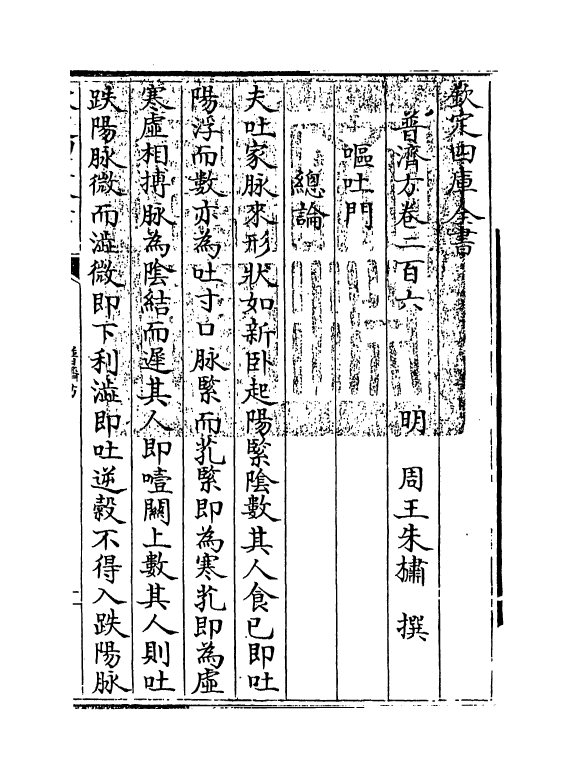 欽定四庫全書
普濟方卷二百六 明 周王朱橚 撰
嘔吐門
總論
夫吐家脉來形狀如新卧起陽緊陰數其人食已即吐
陽浮而數亦為吐寸口脉緊而芤緊即為寒芤即為虛
寒虛相搏脉為陰結而遲其人即噎闗上數其人則吐
趺陽脉微而澁微即下利澁即吐逆穀不得入趺陽脉